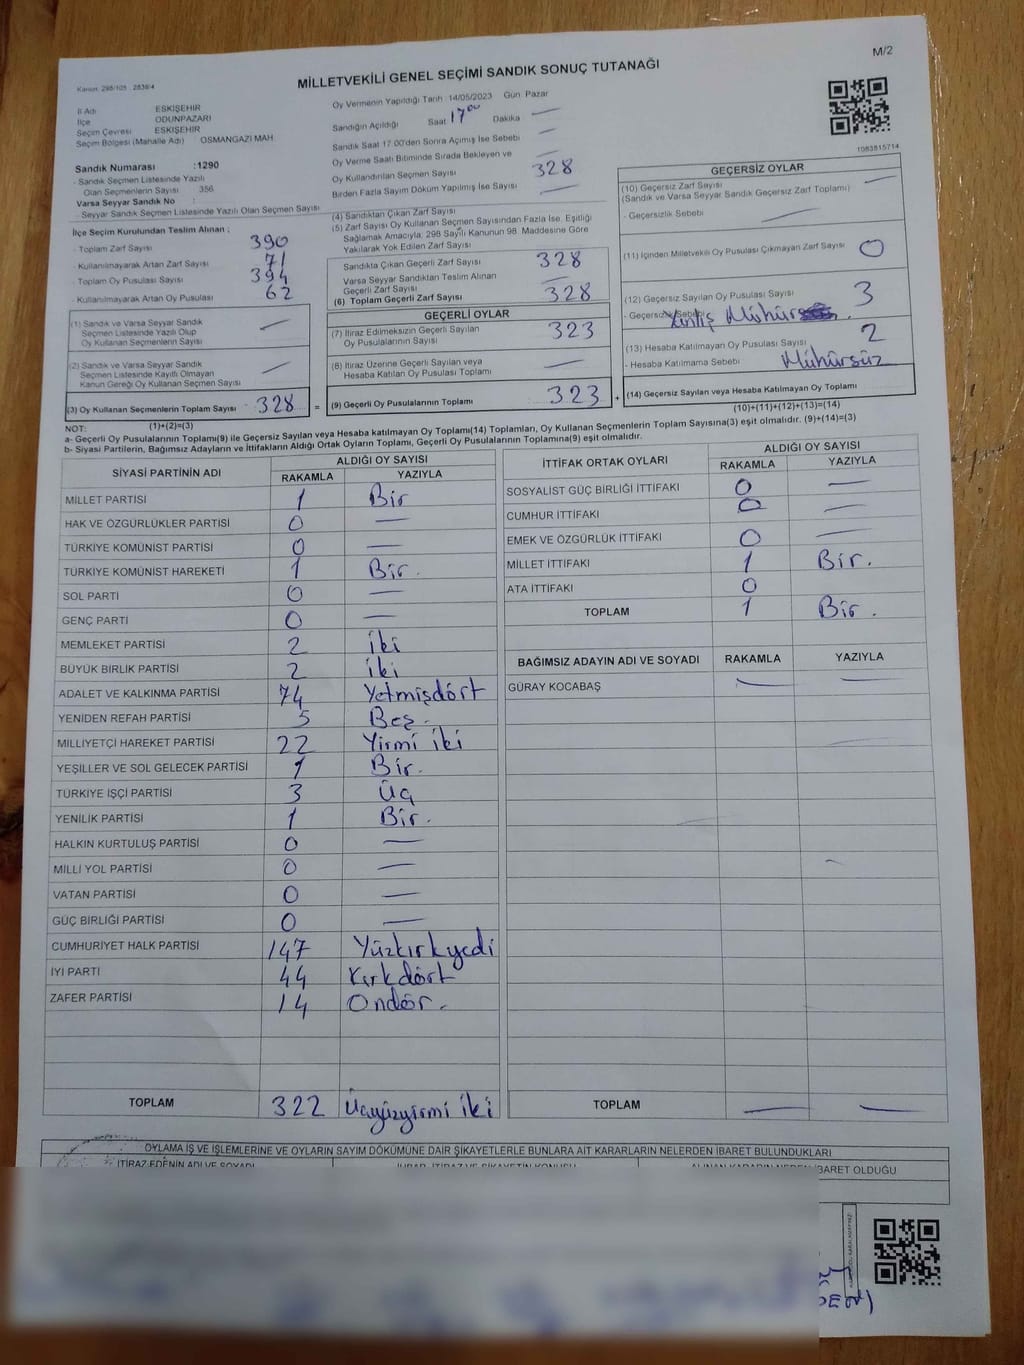 M/2
Kanun: 298/105 2839/4
MİLLETVEKİLİ GENEL SEÇİMİ SANDIK SONUÇ TUTANAĞI
İl Adı ESKİŞEHİR
İlçe ODUNPAZARI
Seçim Çevresi ESKİŞEHİR
Seçim Bölgesi (Mahalle Adı) OSMANGAZİ MAH.
Sandık Numarası :1290
- Sandık Seçmen Listesinde Yazılı
Olan Seçmenlerin Sayısı 356
Varsa Seyyar Sandık No :
- Seyyar Sandık Seçmen Listesinde Yazılı Olan Seçmen Sayısı
İlçe Seçim Kurulundan Teslim Alınan :
- Toplam Zarf Sayısı 390
- Kullanılmayarak Artan Zarf Sayısı 71
- Toplam Oy Pusulası Sayısı 394
- Kullanılmayarak Artan Oy Pusulası 62
(1) Sandık ve Varsa Seyyar Sandık
Seçmen Listesinde Yazılı Olup
Oy Kullanan Seçmenlerin Sayısı —
(2) Sandık ve Varsa Seyyar Sandık
Seçmen Listesinde Kayıtlı Olmayan
Kanun Gereği Oy Kullanan Seçmen Sayısı —
(3) Oy Kullanan Seçmenlerin Toplam Sayısı 328 =
(1)+(2)=(3)
Oy Vermenin Yapıldığı Tarih 14/05/2023 Gün Pazar
Sandığın Açıldığı Saat 17⁰⁰ Dakika —
Sandık Saat 17.00'den Sonra Açımış İse Sebebi —
Oy Verme Saati Bitiminde Sırada Bekleyen ve —
Oy Kullandırılan Seçmen Sayısı 328
Birden Fazla Sayım Döküm Yapılmış İse Sayısı —
(4) Sandıktan Çıkan Zarf Sayısı
(5) Zarf Sayısı Oy Kullanan Seçmen Sayısından Fazla İse, Eşitliği
Sağlamak Amacıyla, 298 Sayılı Kanunun 98. Maddesine Göre
Yakılarak Yok Edilen Zarf Sayısı
Sandıkta Çıkan Geçerli Zarf Sayısı 328
Varsa Seyyar Sandıktan Teslim Alınan
Geçerli Zarf Sayısı —
(6) Toplam Geçerli Zarf Sayısı 328
GEÇERLİ OYLAR
(7) İtiraz Edilmeksizin Geçerli Sayılan
Oy Pusulalarının Sayısı 323
(8) İtiraz Üzerine Geçerli Sayılan veya
Hesaba Katılan Oy Pusulası Toplamı —
(9) Geçerli Oy Pusulalarının Toplamı 323 +
1083815714
GEÇERSİZ OYLAR
(10) Geçersiz Zarf Sayısı —
(Sandık ve Varsa Seyyar Sandık Geçersiz Zarf Toplamı)
- Geçersizlik Sebebi —
(11) İçinden Milletvekili Oy Pusulası Çıkmayan Zarf Sayısı 0
(12) Geçersiz Sayılan Oy Pusulası Sayısı 3
- Geçersizlik Sebebi Yanlış Mühür
(13) Hesaba Katılmayan Oy Pusulası Sayısı 2
- Hesaba Katılmama Sebebi Mühürsüz
(14) Geçersiz Sayılan veya Hesaba Katılmayan Oy Toplamı
(10)+(11)+(12)+(13)=(14)
NOT:
a- Geçerli Oy Pusulalarının Toplamı(9) ile Geçersiz Sayılan veya Hesaba katılmayan Oy Toplamı(14) Toplamları, Oy Kullanan Seçmenlerin Toplam Sayısına(3) eşit olmalıdır. (9)+(14)=(3)
b- Siyasi Partilerin, Bağımsız Adayların ve İttifakların Aldığı Ortak Oyların Toplamı, Geçerli Oy Pusulalarının Toplamına(9) eşit olmalıdır.
SİYASİ PARTİNİN ADI ALDIĞI OY SAYISI
RAKAMLA YAZIYLA
MİLLET PARTİSİ 1 Bir
HAK VE ÖZGÜRLÜKLER PARTİSİ 0 —
TÜRKİYE KOMÜNİST PARTİSİ 0 —
TÜRKİYE KOMÜNİST HAREKETİ 1 Bir.
SOL PARTİ 0 —
GENÇ PARTİ 0 —
MEMLEKET PARTİSİ 2 iki
BÜYÜK BİRLİK PARTİSİ 2 iki
ADALET VE KALKINMA PARTİSİ 74 Yetmişdört
YENİDEN REFAH PARTİSİ 5 Beş.
MİLLİYETÇİ HAREKET PARTİSİ 22 Yirmi iki
YEŞİLLER VE SOL GELECEK PARTİSİ 1 Bir.
TÜRKİYE İŞÇİ PARTİSİ 3 Üç
YENİLİK PARTİSİ 1 Bir.
HALKIN KURTULUŞ PARTİSİ 0 —
MİLLİ YOL PARTİSİ 0 —
VATAN PARTİSİ 0 —
GÜÇ BİRLİĞİ PARTİSİ 0 —
CUMHURİYET HALK PARTİSİ 147 Yüzkırkyedi
İYİ PARTİ 44 Kırkdört
ZAFER PARTİSİ 14 Ondör.
TOPLAM 322 Üçyüzyirmi iki
İTTİFAK ORTAK OYLARI ALDIĞI OY SAYISI
RAKAMLA YAZIYLA
SOSYALİST GÜÇ BİRLİĞİ İTTİFAKI 0 —
CUMHUR İTTİFAKI 0 —
EMEK VE ÖZGÜRLÜK İTTİFAKI 0 —
MİLLET İTTİFAKI 1 Bir.
ATA İTTİFAKI 0
TOPLAM 1 Bir.
BAĞIMSIZ ADAYIN ADI VE SOYADI RAKAMLA YAZIYLA
GÜRAY KOCABAŞ — —
TOPLAM — —
OYLAMA İŞ VE İŞLEMLERİNE VE OYLARIN SAYIM DÖKÜMÜNE DAİR ŞİKAYETLERLE BUNLARA AİT KARARLARIN NELERDEN İBARET BULUNDUKLARI
İTİRAZ EDENİN ADI VE SOYADI
İBARET OLDUĞU